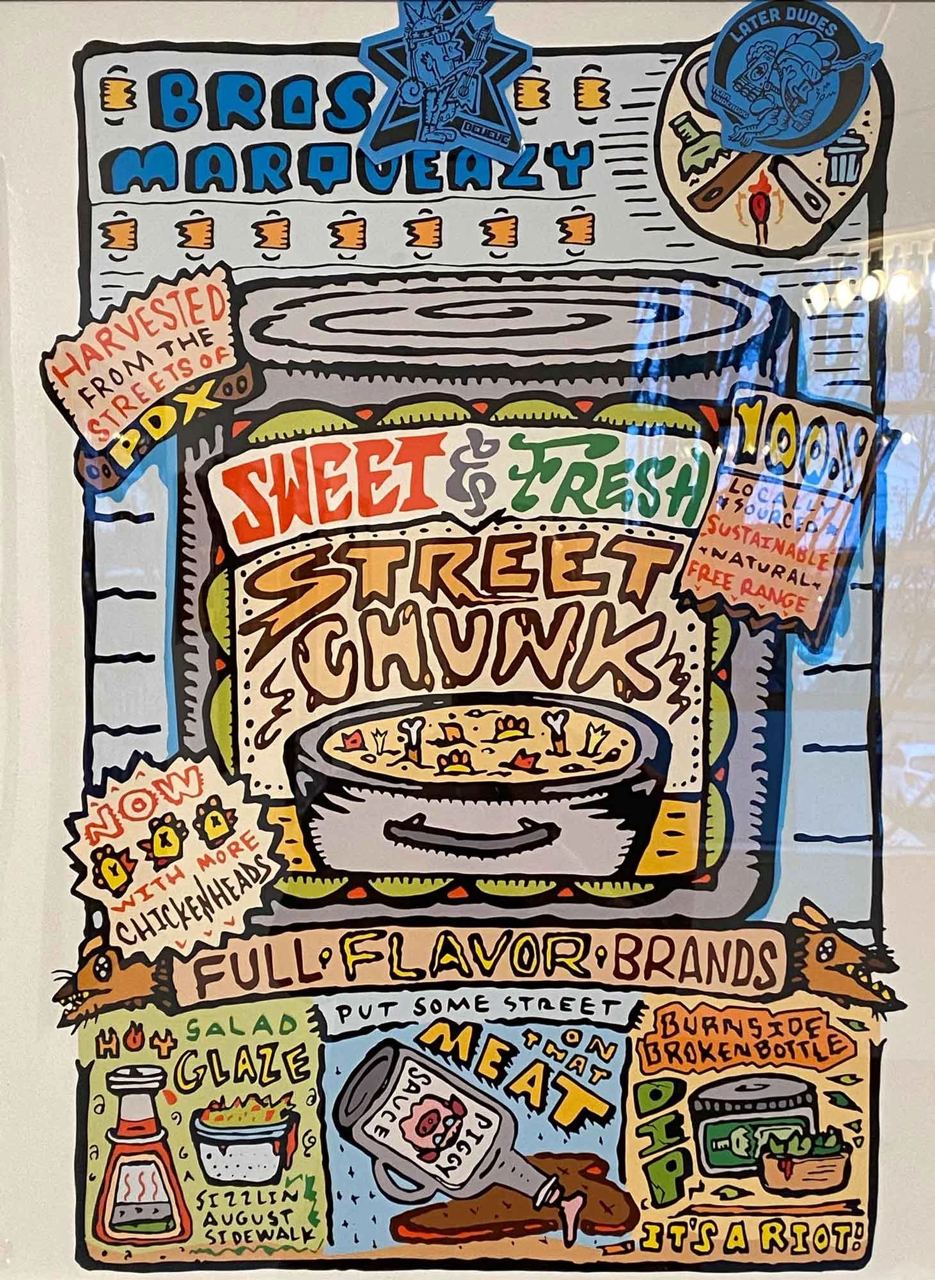 BROS
MARQUEAZY
BELIEVE
LATER DUDES
HARVESTED
FROM THE
STREETS OF
PDX
100%
LOCALLY
SOURCED
SUSTAINABLE
NATURAL
FREE RANGE
SWEET & FRESH
STREET
CHUNK
NOW
WITH MORE
CHICKENHEADS
FULL·FLAVOR·BRANDS
HOT SALAD
GLAZE
SIZZLIN
AUGUST
SIDEWALK
PUT SOME STREET
MEAT
ON
THAT
PIGGY
SAUCE
BURNSIDE
BROKEN BOTTLE
DIP
IT'S A RIOT!